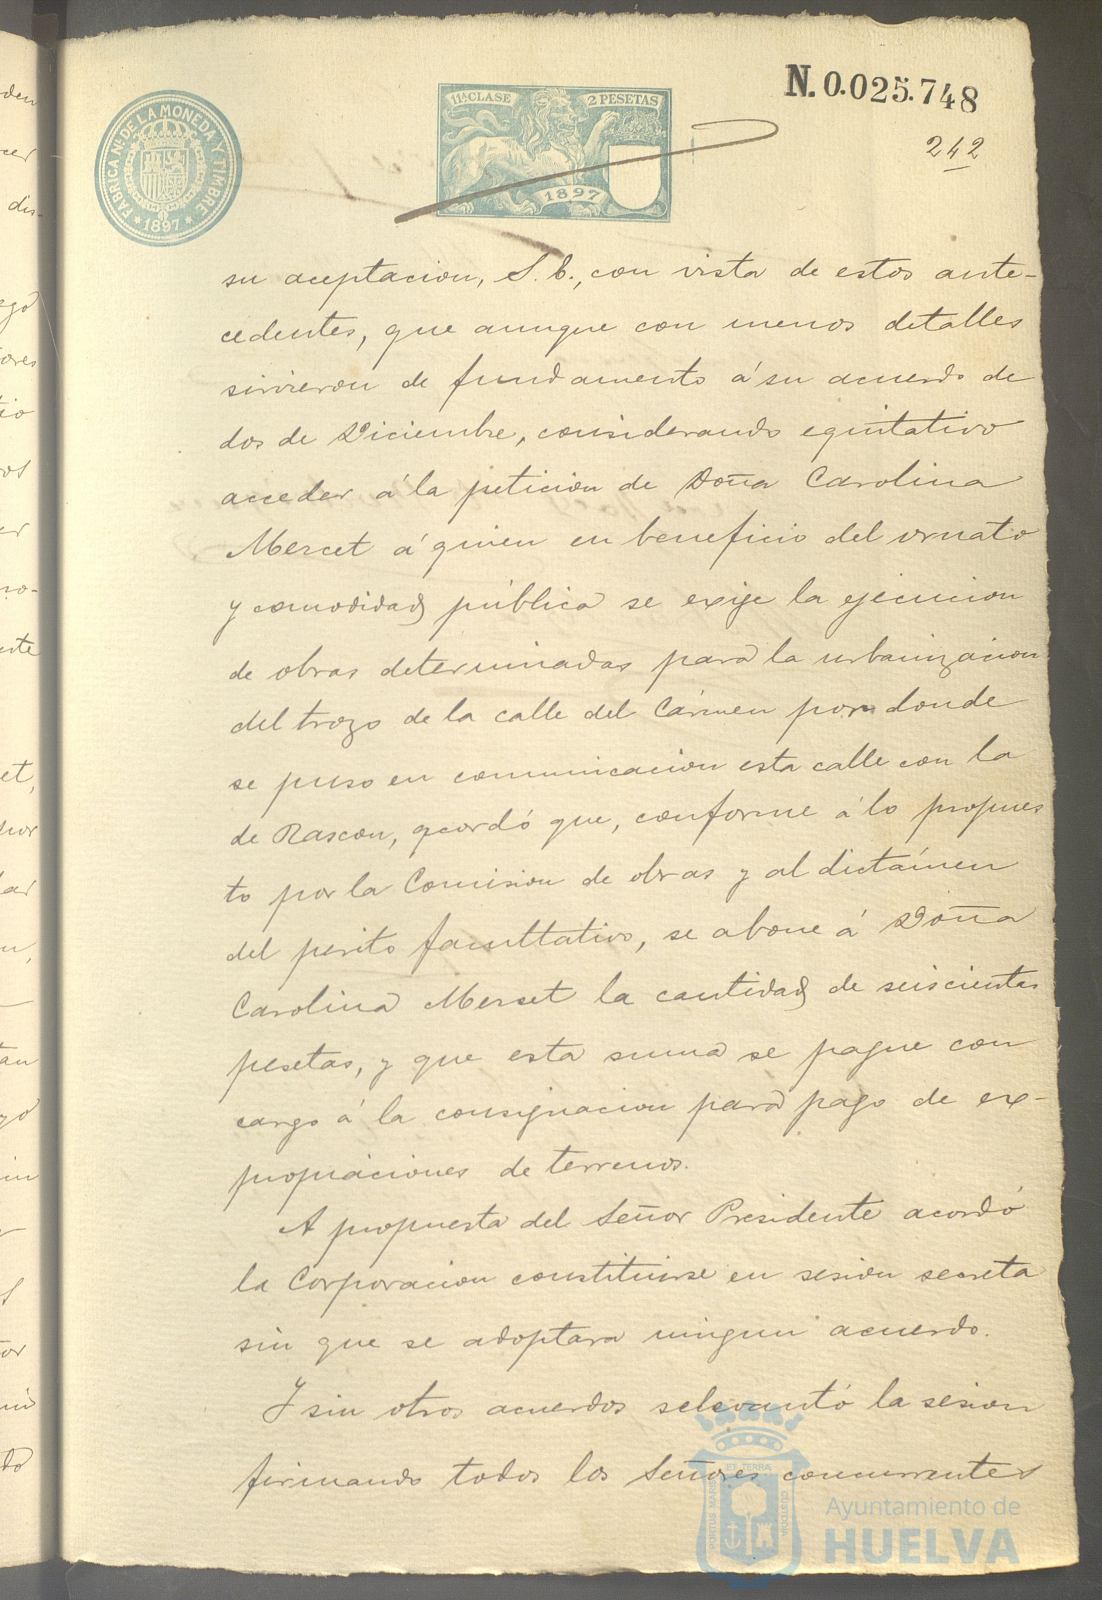 N. 0.025.748
242
FÁBRICA NL. DE LA MONEDA Y TIMBRE
* 1897 *
11ª CLASE
2 PESETAS
1897
su aceptacion, S. E., con vista de estos ante-
cedentes, que aunque con menos detalles
sirvieron de fundamento á su acuerdo de
dos de Diciembre, considerando equitativo
acceder á la peticion de Doña Carolina
Mercet á quien en beneficio del ornato
y comodidad pública se exije la ejecucion
de obras determinadas para la urbanizacion
del trozo de la calle del Cármen por donde
se puso en comunicacion esta calle con la
de Rascon, acordó que, conforme á lo propues
to por la Comision de obras y al dictámen
del perito facultativo, se abone á Doña
Carolina Merset la cantidad de seiscientas
pesetas, y que esta suma se pague con
cargo á la consignacion para pago de ex-
propiaciones de terrenos.
A propuesta del Señor Presidente acordó
la Corporacion constituirse en sesion secreta
sin que se adoptara ningun acuerdo.
Y sin otros acuerdos se levantó la sesion
firmando todos los Señores concurrentes
PORTUS MARIS ET TERRA CUSTODIA
Ayuntamiento de
HUELVA